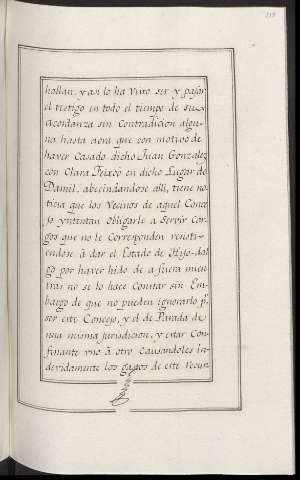 hallan, y asi lo ha visto ser y pasar
el testigo en todo el tiempo de su
acordanza sin contradicion algu-
na hasta aora que con motivo de
haver Casado dicho Juan Gonzalez
con Clara Feixoo en dicho Lugar de
Damil, abecindandose alli, tiene no-
ticia que los Vecinos de aquel Conce-
jo yntentan obligarle a Servir Car-
gos que no le Corresponden resisti-
endose à dar el Estado de Hijo-dal
go por haver hido de a fuera mien
tras no se lo hace Constar sin Em-
bargo de que no pueden ignorarlo pr.
ser este Concejo, y el de Parada de
una misma jurisdicion, y estar Con-
finante uno à otro causandoles in-
devidamente los gastos de este recur